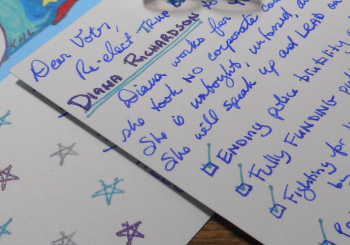 Dear Voter,
Re-elect TRUE
DIANA RICHARDSON to
Diana works for
she took NO corporate
She is unbought, unbossed,
She will speak up and LEAD on
ENDING police brutality
Fully FUNDING
Fighting for
by